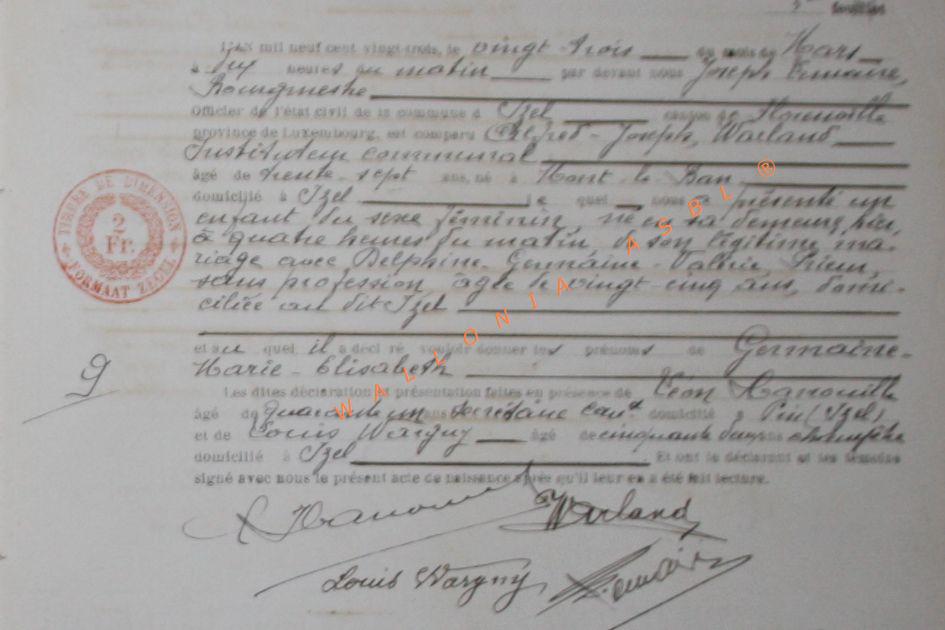 feuillet
L'AN mil neuf cent vingt-trois, le vingt trois du mois de Mars
à dix heures du matin par devant nous Joseph Lemaire,
Bourgmestre
Officier de l'état civil de la commune d Izel canton de Florenville
province de Luxembourg, est comparu Alfred-Joseph, Warland
Instituteur communal
âgé de trente-sept ans, né à Mont le Ban
domicilié à Izel le quel nous a présenté un
enfant du sexe féminin, né en sa demeure, hier,
à quatre heures du matin, de son légitime ma-
riage avec Delphine-Germaine-Valérie,
sans profession, âgée de vingt cinq ans, domi-
ciliée au dit Izel
et au quel il a déclaré vouloir donner les prénoms de Germaine-
Marie-Elisabeth
Les dites déclaration et présentation faites en présence de Léon Hanouille
âgé de quarante un ans Secrétaire Com.l domicilié à Pin (Izel)
et de Louis Wargny âgé de cinquante deux ans champêtre
domicilié à Izel Et ont le déclarant et les témoins
signé avec nous le présent acte de naissance après qu'il leur en a été fait lecture.
TIMBRE DE DIMENSION
2
Fr.
FORMAAT ZEGEL
9
WALLONIA ASBL ®
Warland
Louis Wargny
Lemaire